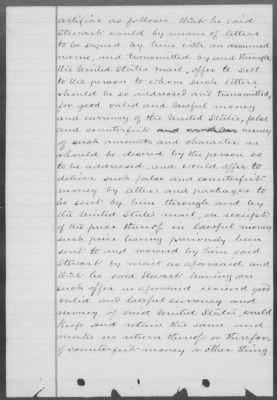 artifice as follows. That he said
Stewart would by means of letters
to be signed by him with an assumed
name, and transmitted by and through
the United States mail, offer to sell
to the person to whom such letters
should be so addressed and transmitted,
for good valid and lawful money
and currency of the United States, false
and counterfeit and worthless money
of such amounts and character as
should be desired by the person so
to be addressed, and would offer to
deliver such false and counterfeit
money by letters and packages to
be sent by him through and by
the United States mail, on receipt
of the price thereof in lawful money
such price having previously been
sent to and received by him said
Stewart by mail as aforesaid, and
that he said Stewart having on
such offer as aforesaid received good
valid and lawful currency and
money of said United States, would
keep and retain the same and
make no return thereof or therefor,
of counterfeit money or other thing